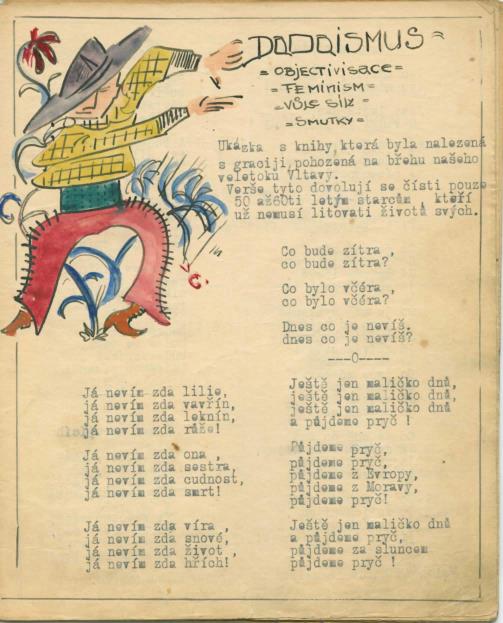 DADAISMUS
= OBJECTIVISACE =
= FEMINISM =
= VŮLE SÍLY =
= SMUTKY =
Ukázka s knihy, která byla nalezená
s graciji, pohozená na břehu našeho
veletoku Vltavy.
Verše tyto dovolují se čísti pouze
50 až 60ti letým starcům, kteří
už nemusí litovati životů svých.
Co bude zítra ,
co bude zítra?
Co bylo včéra ,
co bylo včéra?
Dnes co je nevíš.
dnes co je nevíš?
---O----
Já nevím zda lilie,
já nevím zda vavřín,
já nevím zda leknín,
já nevím zda růže!
Já nevím zda ona ,
já nevím zda sestra,
já nevím zda cudnost,
já nevím zda smrt!
Já nevím zda víra ,
já nevím zda snové,
já nevím zda život ,
já nevím zda hřích!
Ještě jen maličko dnů,
ještě jen maličko dnů,
ještě jen maličko dnů
a půjdeme pryč !
Půjdeme pryč,
půjdeme pryč,
půjdeme z Evropy,
půjdeme z Moravy,
půjdeme pryč!
Ještě jen maličko dnů
a půjdeme pryč,
půjdeme za sluncem
půjdeme pryč !